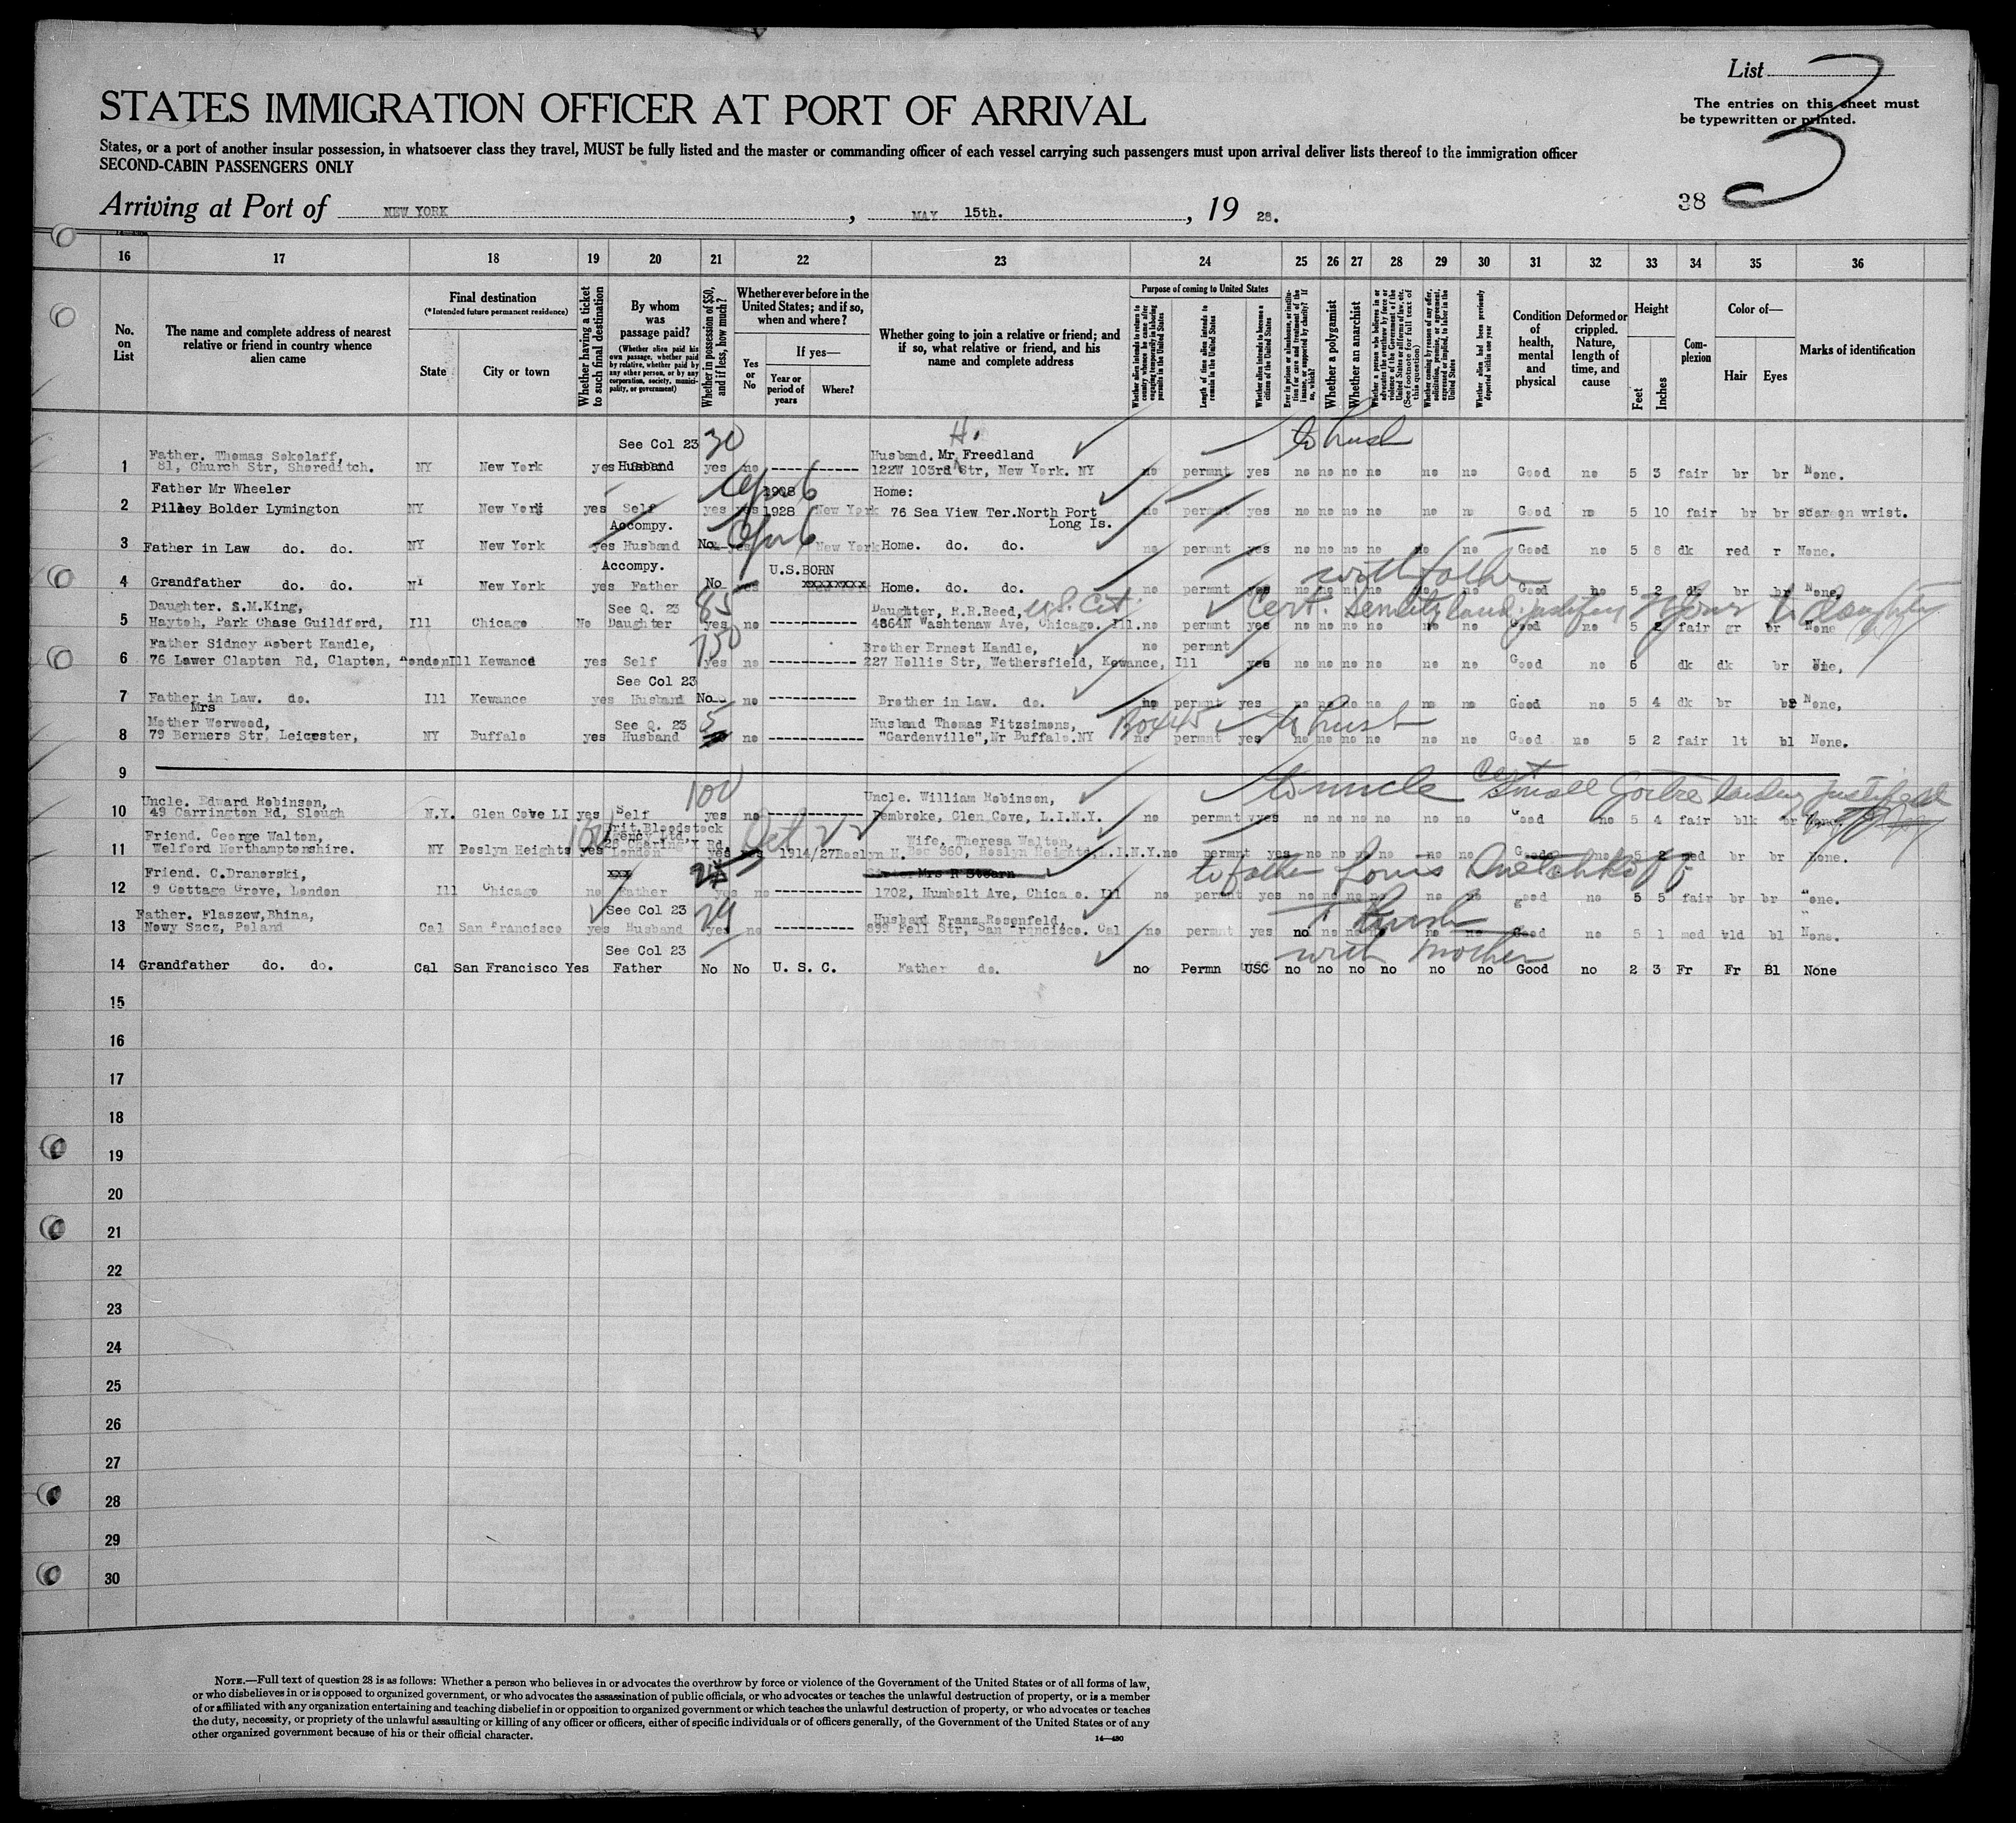 List
The entries on this sheet must
be typewritten or printed.
3
STATES IMMIGRATION OFFICER AT PORT OF ARRIVAL
States, or a port of another insular possession, in whatsoever class they travel, MUST be fully listed and the master or commanding officer of each vessel carrying such passengers must upon arrival deliver lists thereof to the immigration officer
SECOND-CABIN PASSENGERS ONLY
Arriving at Port of NEW YORK, MAY 15th., 19 28.
38
16 17 18 19 20 21 22 23 24 25 26 27 28 29 30 31 32 33 34 35 36
No. on List
The name and complete address of nearest relative or friend in country whence alien came
Final destination
(*Intended future permanent residence)
State
City or town
Whether having a ticket to such final destination
By whom was passage paid?
(Whether alien paid his own passage, whether paid by relative, whether paid by any other person, or by any corporation, society, municipality, or government)
Whether in possession of $50, and if less, how much?
Whether ever before in the United States; and if so, when and where?
Yes or No
If yes—
Year or period of years
Where?
Whether going to join a relative or friend; and if so, what relative or friend, and his name and complete address
Purpose of coming to United States
Whether alien intends to return to country whence he came after engaging temporarily in laboring pursuits in the United States
Length of time alien intends to remain in the United States
Whether alien intends to become a citizen of the United States
Ever in prison or almshouse, or institution for care and treatment of the insane, or supported by charity? If so, which?
Whether a polygamist
Whether an anarchist
Whether a person who believes in or advocates the overthrow by force or violence of the Government of the United States or all forms of law, etc. (See footnote for full text of this question)
Whether coming by reason of any offer, solicitation, promise, or agreement, expressed or implied, to labor in the United States
Whether alien had been previously deported within one year
Condition of health, mental and physical
Deformed or crippled. Nature, length of time, and cause
Height
Feet
Inches
Complexion
Color of—
Hair
Eyes
Marks of identification
See Col 23 30 H. to husb
1 Father. Thomas Sokolaff, Husband. Mr. Freedland
81, Church Str, Shoreditch. NY New York yes Husband yes no 122W 103rd Str, New York. NY no permnt yes no no no no no no Good no 5 3 fair br br None.
Father Mr Wheeler 1908 Home:
2 Pilley Bolder Lymington NY New York yes Self yes yes 1928 New York 76 Sea View Ter. North Port no permnt yes no no no no no no Good no 5 10 fair br br scar on wrist.
Accompy. Long Is.
3 Father in Law do. do. NY New York yes Husband No New York Home. do. do. no permnt yes no no no no no no Good no 5 8 dk red None.
Accompy. U.S.BORN with father
4 Grandfather do. do. New York yes Father No yes Home. do. do. no permnt yes no no no no no no Good no 5 2 dk br br None,
Daughter. S.M.King, See Q. 23 85 Daughter, R.R.Reed, U.S. Cit. Cert. Senility
5 Haytoh, Park Chase Guildford, Ill Chicago No Daughter yes no 4864N Washtenaw Ave, Chicago. Ill. no permnt yes no no no no no no Good no 5 2 fair gr br None
Father Sidney Robert Kandle, 150 Brother Ernest Kandle, no permnt
6 76 Lower Clapton Rd, Clapton, London Ill Kewance yes Self yes no 227 Hollis Str, Wethersfield, Kewance, Ill yes no no no no no no Good no 6 dk dk br
See Col 23
7 Father in Law. do. Ill Kewance yes Husband No no Brother in Law. do. no permnt yes no no no no no no Good no 5 4 dk br br None,
Mrs
Mother Worwood, See Q. 23 5 Husband Thomas Fitzsimons, Box 45 to husb
8 79 Berners Str, Leicester, NY Buffalo yes Husband no "Gardenville", Nr Buffalo. NY no permnt yes no no no no no no Good no 5 2 fair lt bl None.
9
Uncle. Edward Robinson, 100 Uncle. William Robinson, to uncle Cert small Goitre landing justified
10 49 Carrington Rd, Slough N.Y. Glen Cove LI yes Self yes no Pembroke, Glen Cove, L.I.N.Y. no permnt yes no no no no no no Good no 5 4 fair blk br None.
Friend. George Walton, Brit. Bloodstock Agency Ltd Oct 27 Wife. Theresa Walton,
11 Welford Northamptonshire. NY Roslyn Heights yes London yes 1914/27 Roslyn H. Box 360, Roslyn Heights, L.I.N.Y. no permnt yes no no no no no no Good no 5 2 med br br None.
Friend. C.Dranorski, xxx 25 Mrs R Stearn to father Louis
12 9 Cottage Grove, London Ill Chicago no Father yes no 1702, Humbolt Ave, Chicago. Ill no permnt yes no no no no no no good no 5 5 fair br br None.
Father. Flaszow, Bhina, See Col 23 29 Husband Franz Rosenfeld, To husb
13 Nowy Szcz, Poland Cal San Francisco yes Husband yes no 899 Fell Str, San Francisco. Cal no permnt yes no no no no no no Good no 5 1 med bld bl None.
See Col 23 with mother
14 Grandfather do. do. Cal San Francisco Yes Father No No U. S. C. Father do. no Permn USC no no no no no no Good no 2 3 Fr Fr Bl None
15
16
17
18
19
20
21
22
23
24
25
26
27
28
29
30
NOTE.—Full text of question 28 is as follows: Whether a person who believes in or advocates the overthrow by force or violence of the Government of the United States or of all forms of law,
or who disbelieves in or is opposed to organized government, or who advocates the assassination of public officials, or who advocates or teaches the unlawful destruction of property, or is a member
of or affiliated with any organization entertaining and teaching disbelief in or opposition to organized government or which teaches the unlawful destruction of property, or who advocates or teaches
the duty, necessity, or propriety of the unlawful assaulting or killing of any officer or officers, either of specific individuals or of officers generally, of the Government of the United States or of any
other organized government because of his or their official character.
14—430